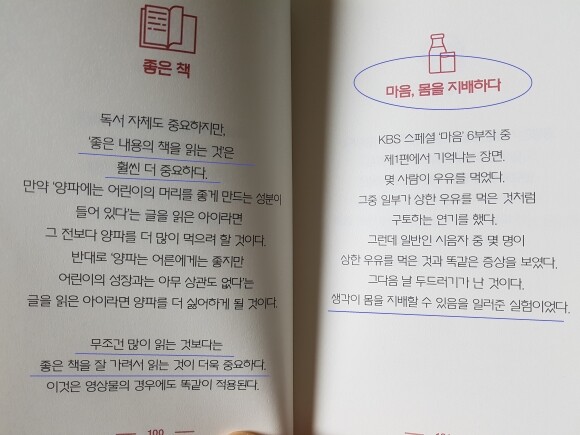 좋은 책
독서 자체도 중요하지만,
'좋은 내용의 책을 읽는 것'은
훨씬 더 중요하다.
만약 '양파에는 어린이의 머리를 좋게 만드는 성분이
들어 있다'는 글을 읽은 아이라면
그 전보다 양파를 더 많이 먹으려 할 것이다.
반대로 '양파는 어른에게는 좋지만
어린이의 성장과는 아무 상관도 없다'는
글을 읽은 아이라면 양파를 더 싫어하게 될 것이다.
무조건 많이 읽는 것보다는
좋은 책을 잘 가려서 읽는 것이 더욱 중요하다.
이것은 영상물의 경우에도 똑같이 적용된다.
100
마음, 몸을 지배하다
KBS 스페셜 '마음' 6부작 중
제1편에서 기억나는 장면.
몇 사람이 우유를 먹었다.
그중 일부가 상한 우유를 먹은 것처럼
구토하는 연기를 했다.
그런데 일반인 시음자 중 몇 명이
상한 우유를 먹은 것과 똑같은 증상을 보였다.
그다음 날 두드러기가 난 것이다.
생각이 몸을 지배할 수 있음을 일러준 실험이었다.